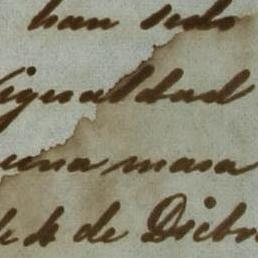 han sido
igualdad
una masa
de Dicbre